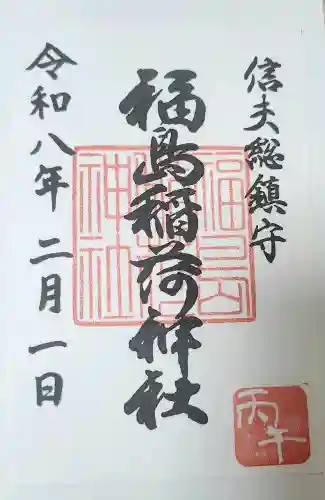 信夫総鎮守
福島稲荷神社
令和八年二月一日
福島稲荷神社
丙午